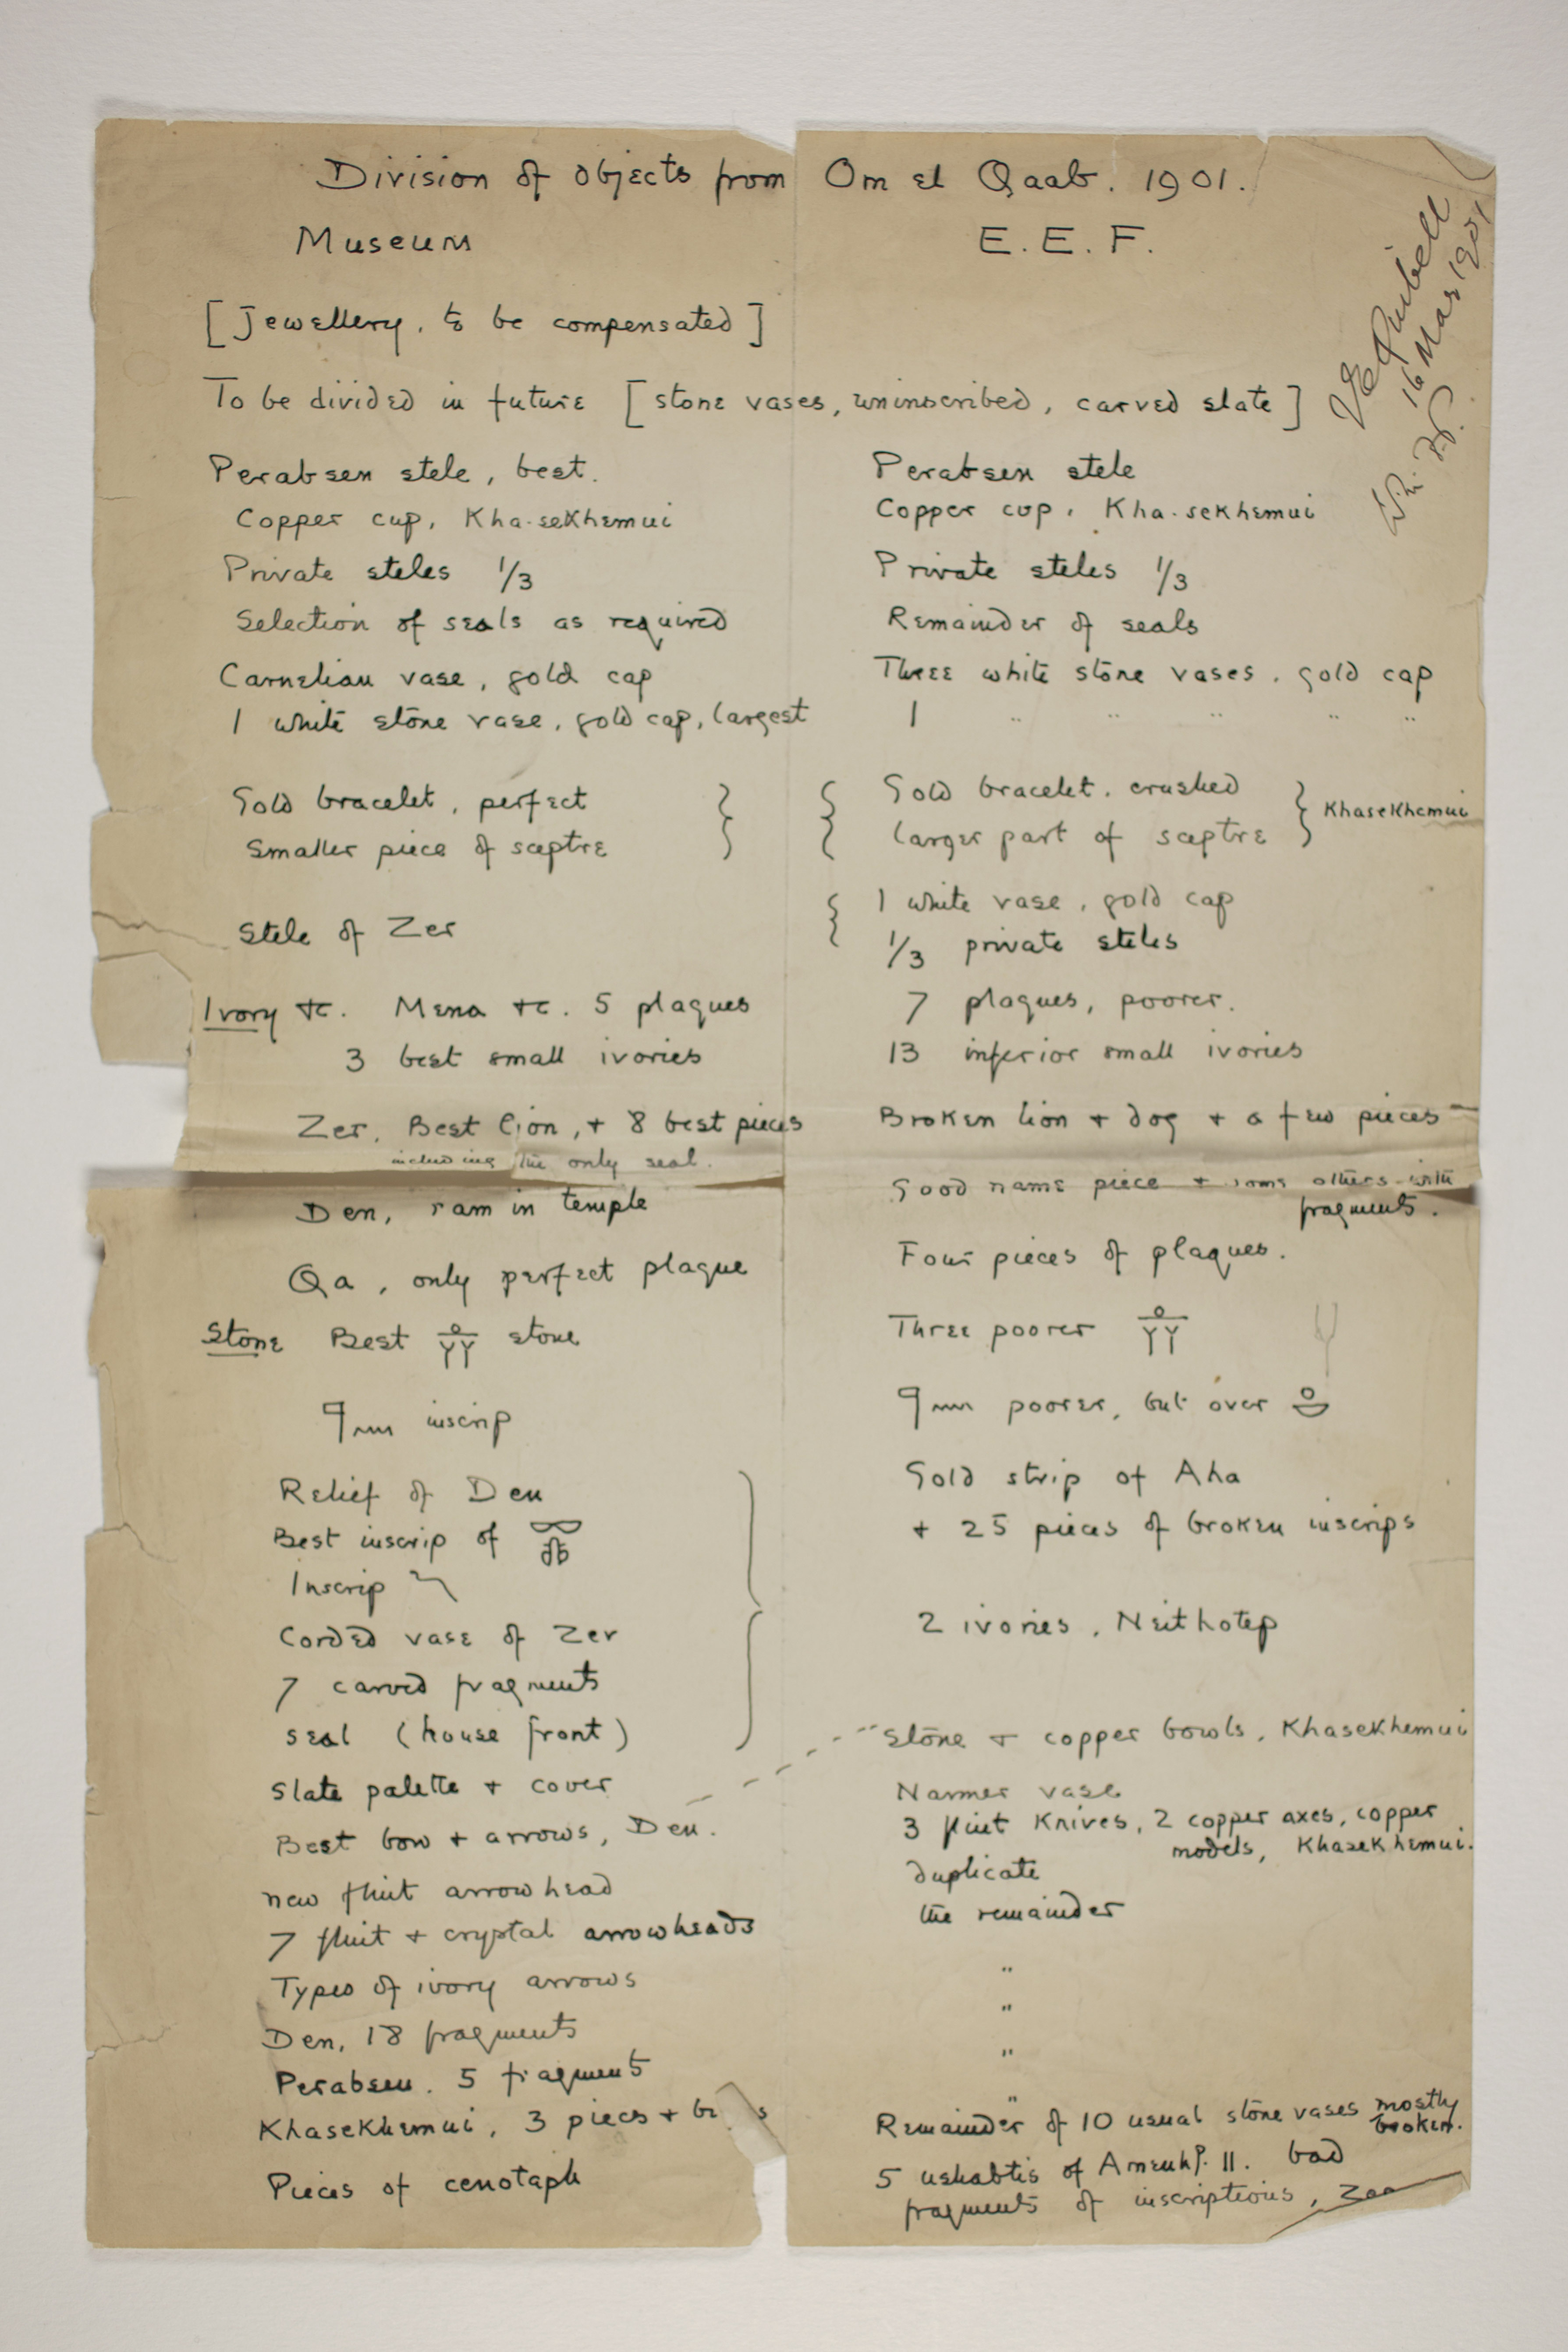 Division of objects from Om el Qaab. 1901.
Museum
E. E. F.
J E Quibell
16 Mar 1901
[Jewellery, to be compensated]
To be divided in future [stone vases, uninscribed, carved slate]
Perabsen stele, best.
Perabsen stele
Copper cup, Kha-seKhemui
Copper cup, Kha-seKhemui
Private steles 1/3
Private steles 1/3
Selection of seals as required
Remainder of seals
Carnelian vase, gold cap
Three white stone vases, gold cap
1 white stone vase, gold cap, largest
1 " " " " "
Gold bracelet, perfect
Gold bracelet, crushed
Khasekhemui
Smaller piece of sceptre
larger part of sceptre
1 white vase, gold cap
Stele of Zer
1/3 private steles
Ivory &c. Mena &c. 5 plaques
7 plaques, poorer.
3 best small ivories
13 inferior small ivories
Zer. Best lion, + 8 best pieces
including the only seal.
Broken lion + dog + a few pieces
Den, ram in temple
Good name piece + some others with
fragments.
Qa, only perfect plaque
Four pieces of plaques.
Stone Best stone
Three poorer
inscrip
poorer, but over
Relief of Den
Gold strip of Aha
Best inscrip of
+ 25 pieces of broken inscrips
Inscrip
Corded vase of Zer
2 ivories, Neithotep
7 carved fragments
seal (house front)
Stone + copper bowls, Khasekhemui
Slate palette + cover
Narmer vase
Best bow + arrows, Den.
3 flint Knives, 2 copper axes, copper
models, Khasekhemui.
new flint arrowhead
duplicate
7 flint + crystal arrowheads
the remainder
Types of ivory arrows
"
Den, 18 fragments
"
Perabsen. 5 fragments
"
Khasekhemui, 3 pieces +
"
Remainder of 10 usual stone vases mostly
broken.
Pieces of cenotaph
5 ushabtis of Amenhp. II. bad
fragments of inscriptions, Zaa